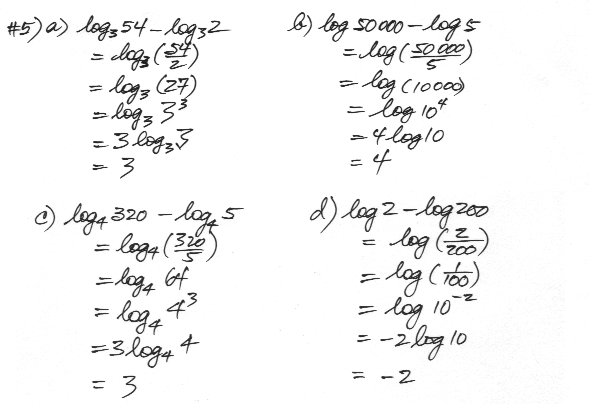 #5) a) log₃54 - log₃2
= log₃(54/2)
= log₃(27)
= log₃ 3³
= 3 log₃3
= 3
b) log 50 000 - log 5
= log(50 000/5)
= log(10 000)
= log 10⁴
= 4 log 10
= 4
c) log₄ 320 - log₄ 5
= log₄(320/5)
= log₄ 64
= log₄ 4³
= 3 log₄ 4
= 3
d) log 2 - log 200
= log(2/200)
= log(1/100)
= log 10⁻²
= -2 log 10
= -2